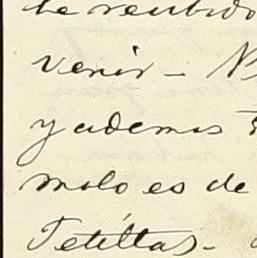 he recibido
venir - N
y ademas
malo es de
Tetillas -